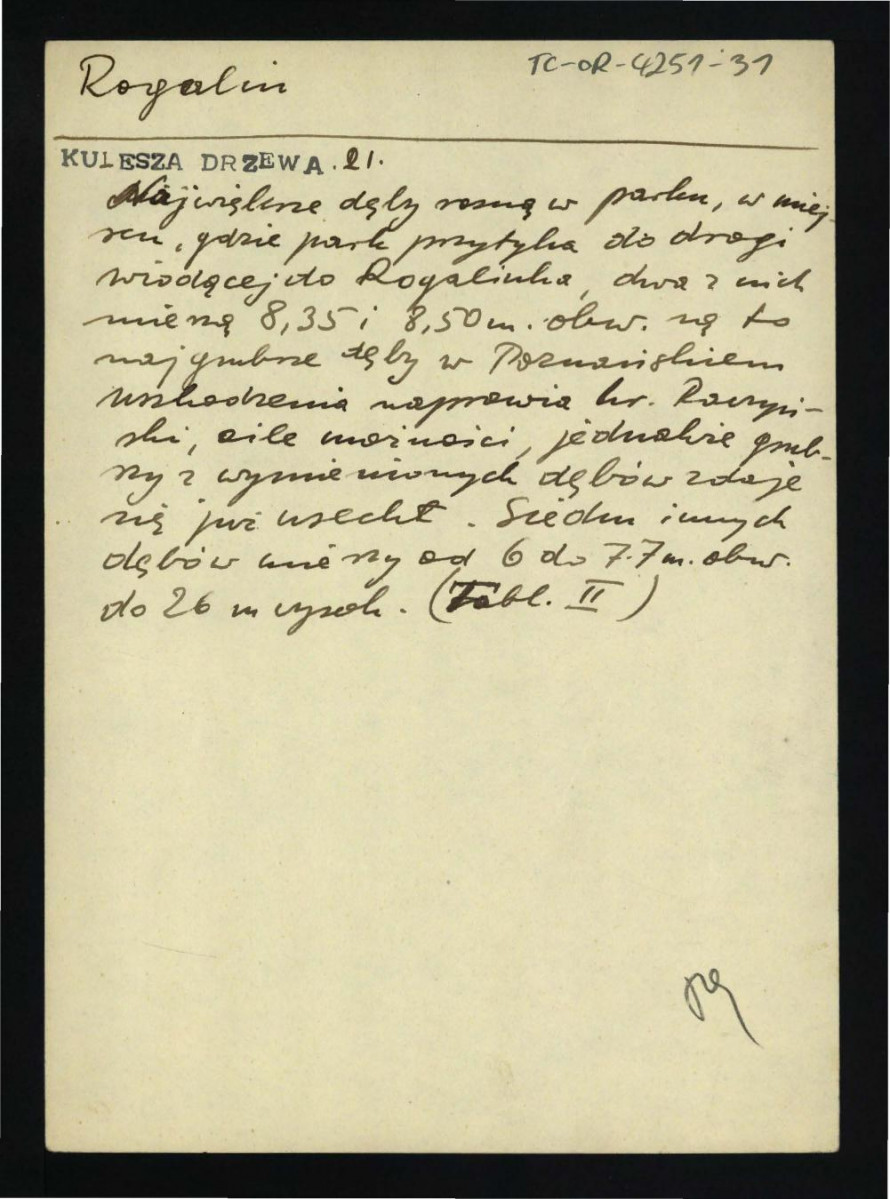 Rogalin
TC-OR-4251-31
KULESZA DRZEWA. 21.
Największe dęby rosną w parku, w miej-
scu, gdzie park przytyka do drogi
wiodącej do Rogalinka, dwa z nich
mierzą 8,35 i 8,50 m. obw. są to
najgrubsze dęby w Poznańskiem
uszkodzenia naprawia hr. Raczyń-
ski, o ile możności, jednakże grub-
szy z wymienionych dębów zdaje
się już usechł. Siedm innych
dębów mierzy od 6 do 7.7 m. obw.
do 26 m wysok. (Tabl. II)